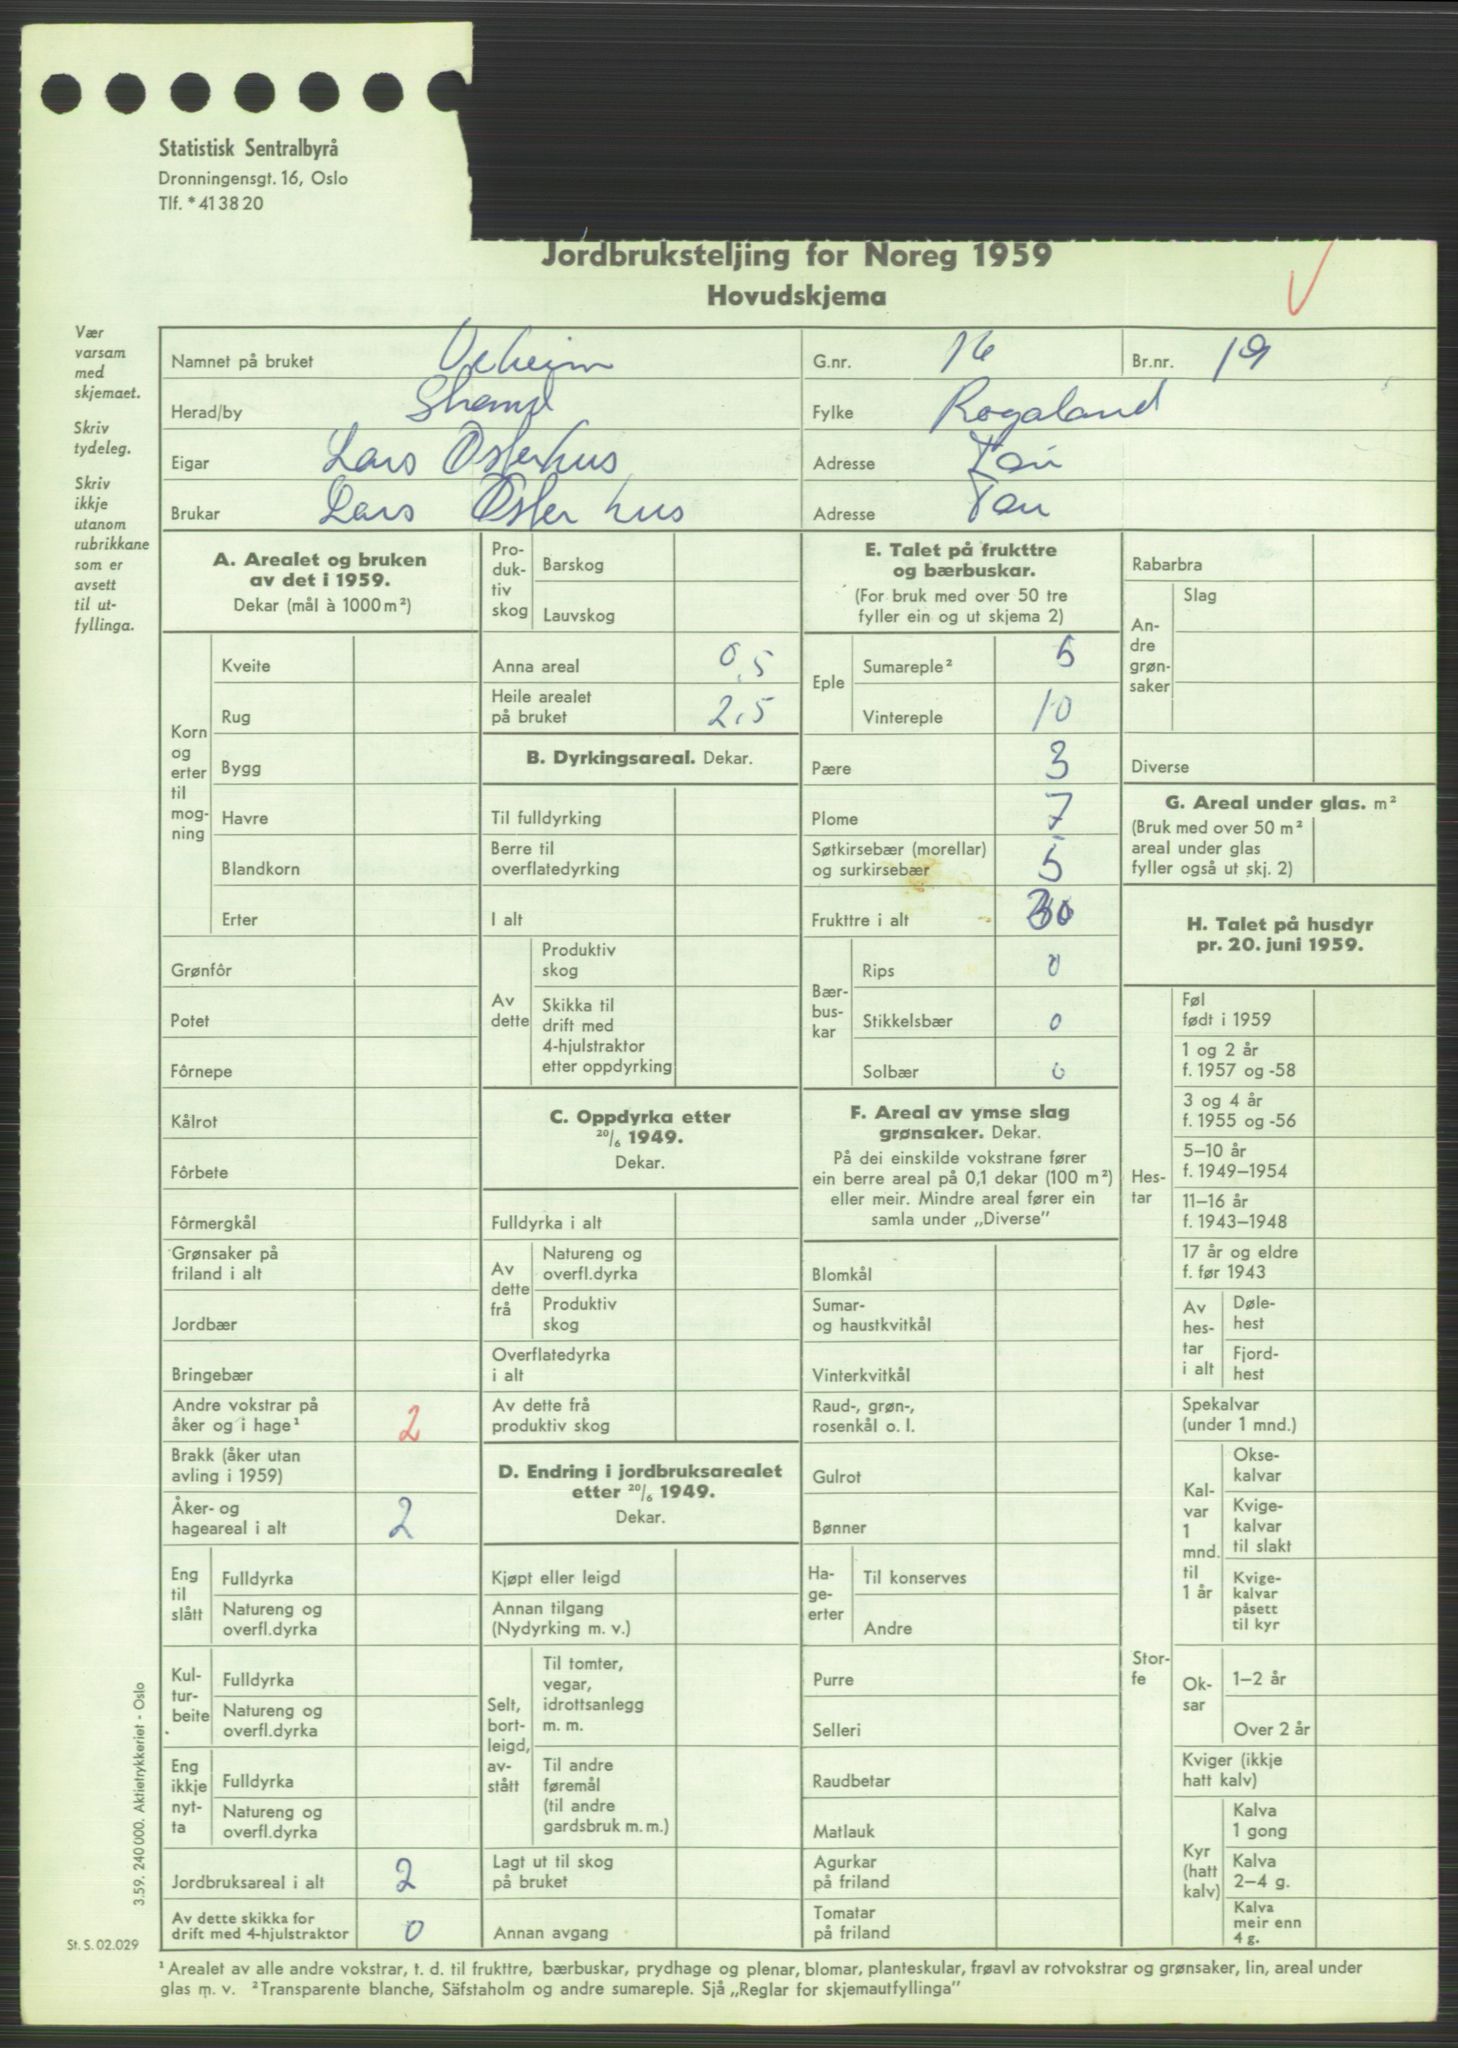 Statistisk Sentralbyrå
Dronningensgt. 16, Oslo
Tlf. * 41 38 20
Jordbruksteljing for Noreg 1959
Hovudskjema
Vær
varsam
med
skjemaet.
Skriv
tydeleg.
Skriv
ikkje
utanom
rubrikkane
som er
avsett
til ut-
fyllinga.
Namnet på bruket
G.nr. 16 Br.nr. 19
Herad/by Strand Fylke Rogaland
Eigar Lars Østerhus Adresse Tau
Brukar Lars Østerhus Adresse Tau
A. Arealet og bruken
av det i 1959.
Dekar (mål à 1000 m²)
Korn
og
erter
til
mog-
ning
Kveite
Rug
Bygg
Havre
Blandkorn
Erter
Grønfôr
Potet
Fôrnepe
Kålrot
Fôrbete
Fôrmergkål
Grønsaker på
friland i alt
Jordbær
Bringebær
Andre vokstrar på
åker og i hage¹ 2
Brakk (åker utan
avling i 1959)
Åker- og
hageareal i alt 2
Eng
til
slått
Fulldyrka
Natureng og
overfl.dyrka
Kul-
tur-
beite
Fulldyrka
Natureng og
overfl.dyrka
Eng
ikkje
nyt-
ta
Fulldyrka
Natureng og
overfl.dyrka
Jordbruksareal i alt 2
Av dette skikka for
drift med 4-hjulstraktor 0
Pro-
duk-
tiv
skog
Barskog
Lauvskog
Anna areal 0,5
Heile arealet
på bruket 2,5
B. Dyrkingsareal. Dekar.
Til fulldyrking
Berre til
overflatedyrking
I alt
Av
dette
Produktiv
skog
Skikka til
drift med
4-hjulstraktor
etter oppdyrking
C. Oppdyrka etter
20/6 1949.
Dekar.
Fulldyrka i alt
Av
dette
frå
Natureng og
overfl.dyrka
Produktiv
skog
Overflatedyrka
i alt
Av dette frå
produktiv skog
D. Endring i jordbruksarealet
etter 20/6 1949.
Dekar.
Kjøpt eller leigd
Annan tilgang
(Nydyrking m. v.)
Selt,
bort-
leigd,
av-
stått
Til tomter,
vegar,
idrottsanlegg
m. m.
Til andre
føremål
(til andre
gardsbruk m. m.)
Lagt ut til skog
på bruket
Annan avgang
E. Talet på frukttre
og bærbuskar.
(For bruk med over 50 tre
fyller ein og ut skjema 2)
Eple
Sumareple² 5
Vintereple 10
Pære 3
Plome 7
Søtkirsebær (morellar)
og surkirsebær 5
Frukttre i alt 30
Bær-
bus-
kar
Rips 0
Stikkelsbær 0
Solbær 0
F. Areal av ymse slag
grønsaker. Dekar.
På dei einskilde vokstrane fører
ein berre areal på 0,1 dekar (100 m²)
eller meir. Mindre areal fører ein
samla under „Diverse”
Blomkål
Sumar-
og haustkvitkål
Vinterkvitkål
Raud-, grøn-,
rosenkål o. l.
Gulrot
Bønner
Ha-
ge-
erter
Til konserves
Andre
Purre
Selleri
Raudbetar
Matlauk
Agurkar
på friland
Tomatar
på friland
Rabarbra
An-
dre
grøn-
saker
Slag
Diverse
G. Areal under glas. m²
(Bruk med over 50 m²
areal under glas
fyller også ut skj. 2)
H. Talet på husdyr
pr. 20. juni 1959.
Hes-
tar
Føl
født i 1959
1 og 2 år
f. 1957 og -58
3 og 4 år
f. 1955 og -56
5–10 år
f. 1949–1954
11–16 år
f. 1943–1948
17 år og eldre
f. før 1943
Av
hes-
tar
i alt
Døle-
hest
Fjord-
hest
Stor-
fe
Spekalvar
(under 1 mnd.)
Kal-
var
1
mnd.
til
1 år
Okse-
kalvar
Kvige-
kalvar
til slakt
Kvige-
kalvar
påsett
til kyr
Ok-
sar
1–2 år
Over 2 år
Kviger (ikkje
hatt kalv)
Kyr
(hatt
kalv)
Kalva
1 gong
Kalva
2–4 g.
Kalva
meir enn
4 g.
3.59. 240 000. Aktietrykkeriet - Oslo
St. S. 02.029
¹ Arealet av alle andre vokstrar, t. d. til frukttre, bærbuskar, prydhage og plenar, blomar, planteskular, frøavl av rotvokstrar og grønsaker, lin, areal under
glas m. v. ² Transparente blanche, Säfstaholm og andre sumareple. Sjå „Reglar for skjemautfyllinga”